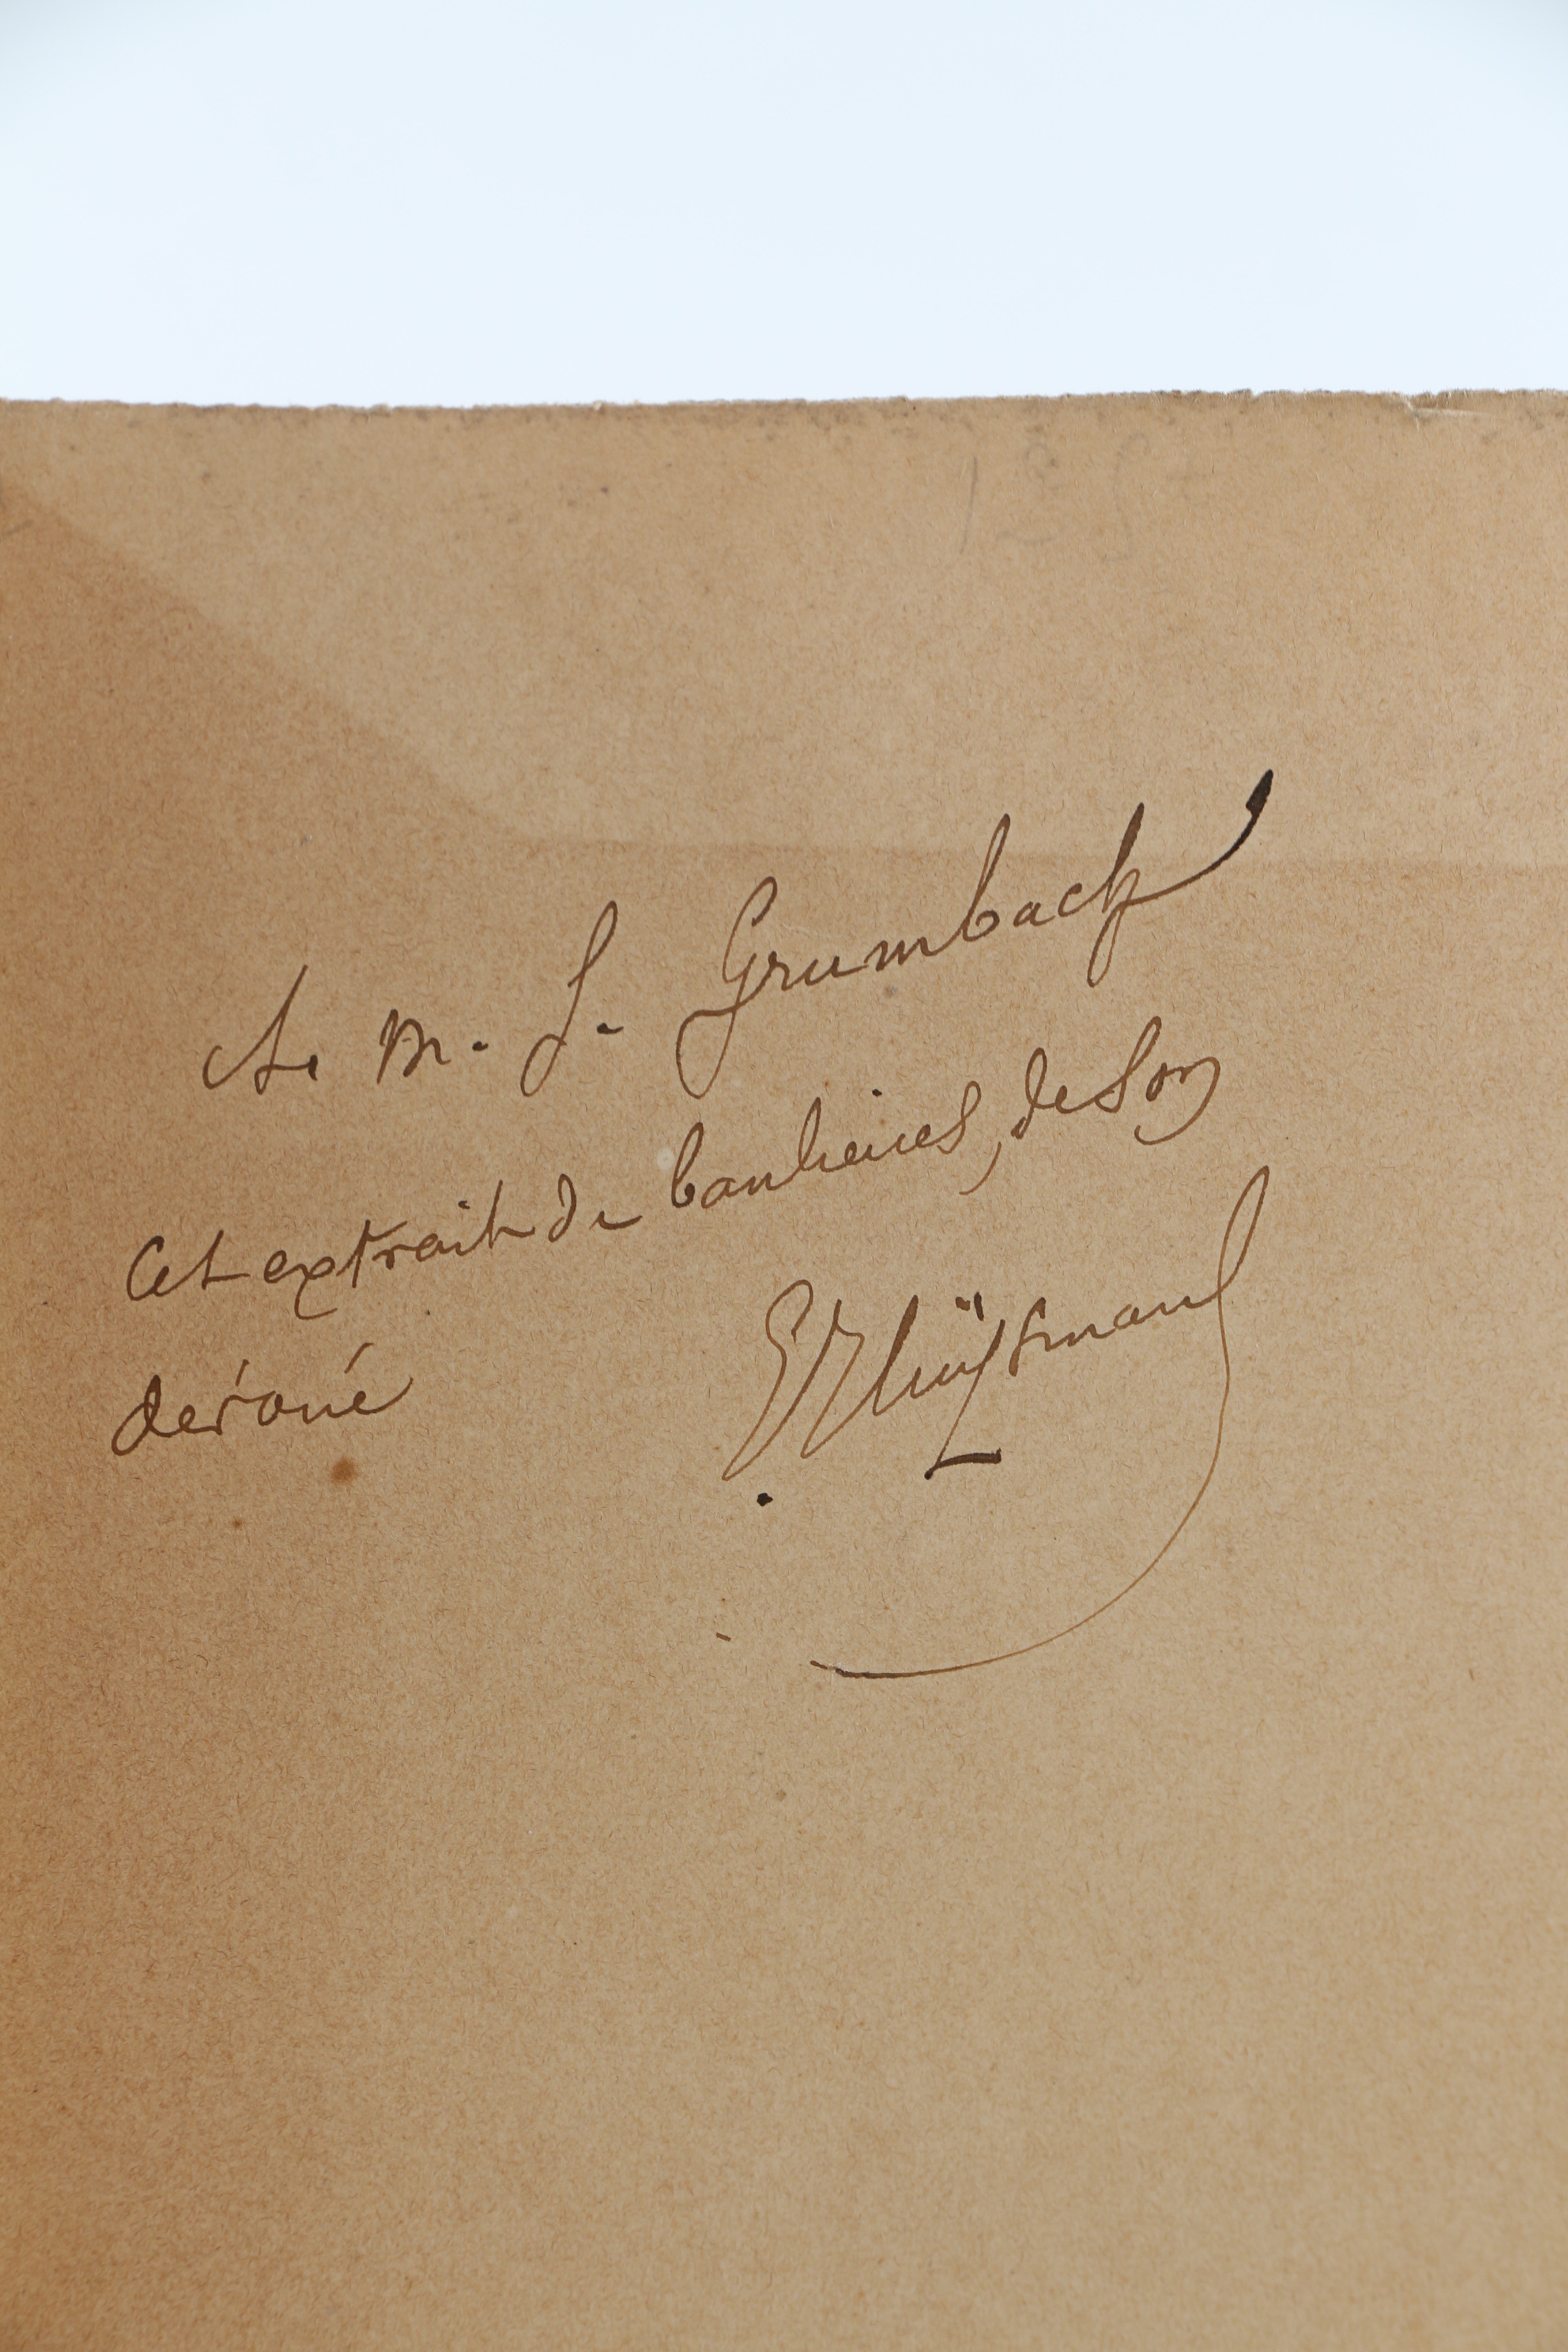 A M. S. Grumbach
Cet extrait de banlieues, de son
dévoué
GHuÿsmans